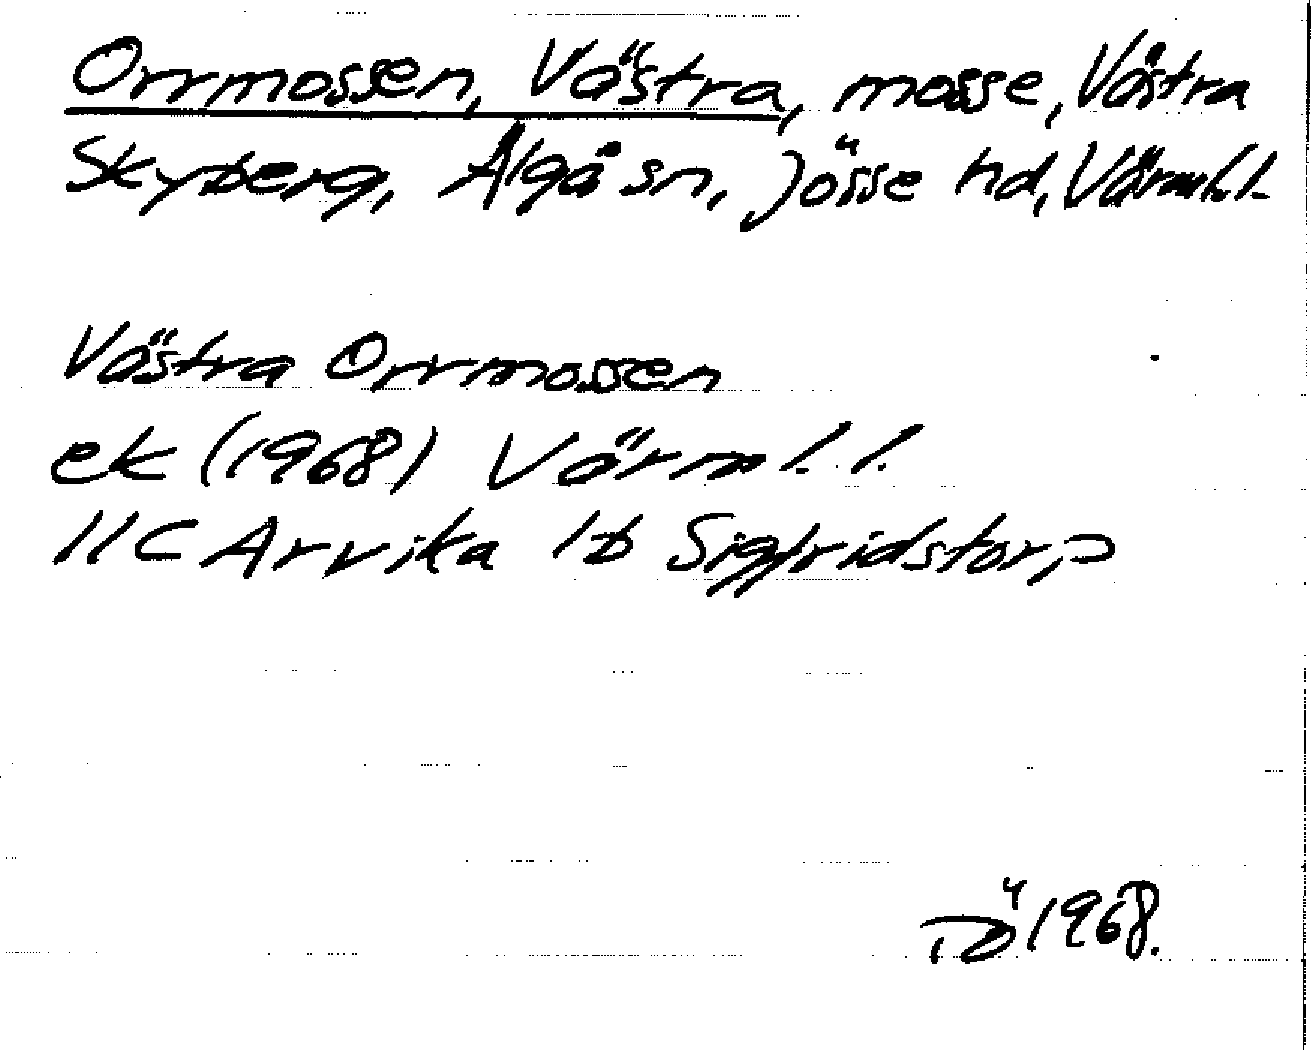 Orrmossen, Västra, mosse, Västra
Skyberg, Älgå sn, Jösse hd, Värml.l.
Västra Orrmossen
ek (1968) Värml.l.
11C Arvika 1b Sigfridstorp
1968.